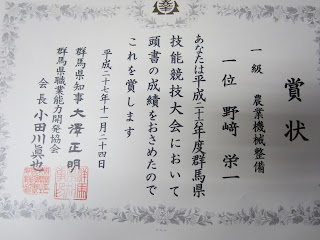 賞状
一級 農業機械整備
一位 野﨑 栄一
あなたは平成二十六年度群馬県
技能競技大会において
頭書の成績をおさめたので
これを賞します
平成二十七年十一月二十四日
群馬県知事 大澤正明
群馬県職業能力開発協会
会長 小田川眞也